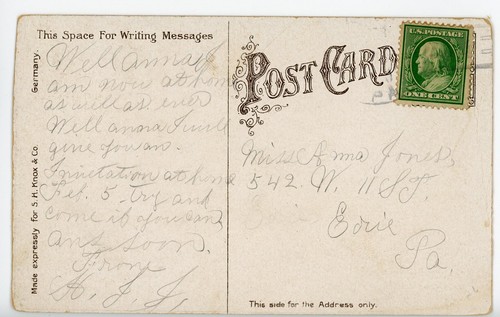 This Space For Writing Messages
Well anna I
am now at home
as well as ever
Well anna I will
give you an
Invitation at home
Feb. 5 try and
come if you can
ans soon.
From
Made expressly for S. H. Knox & Co. Germany.
POST CARD
U.S. POSTAGE
ONE CENT
Miss Anna Jones,
542. W. 11 ST.
Erie
Pa.
This side for the Address only.